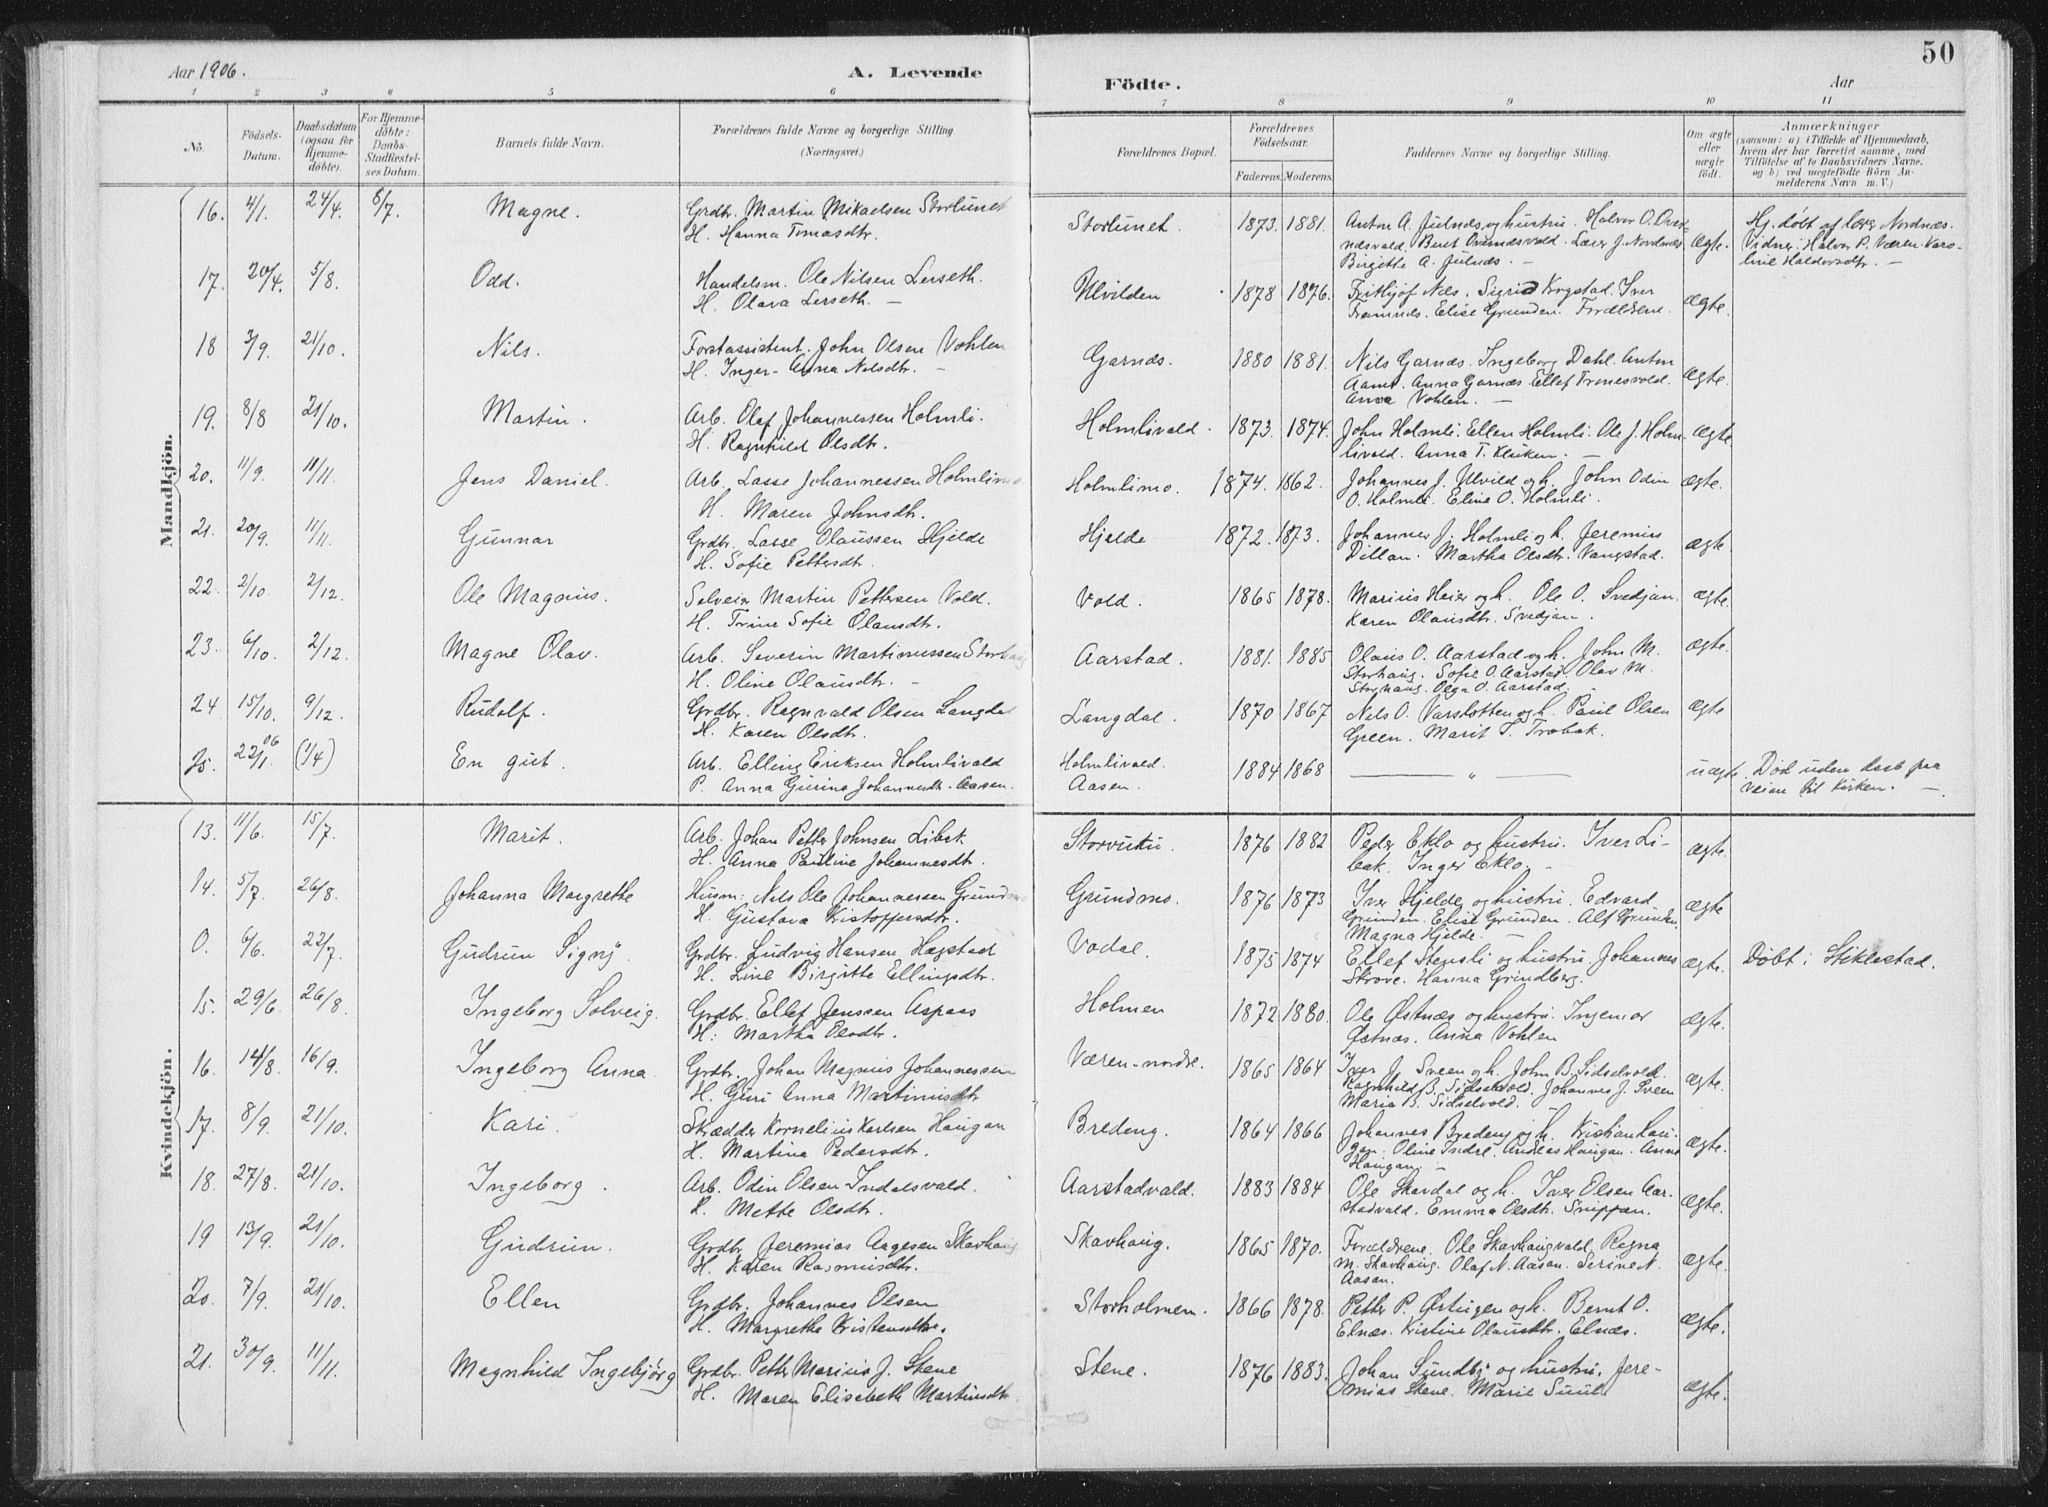 Aar 1906.
A. Levende
Födte.
Aar
50
1 2 3 6 5 6 7 8 9 10 11
No.
Födsels-
Datum.
Daabsdatum
(ogsaa for
Hjemme-
döbte).
For Hjemme-
döbte:
Daabs-
Stadfæstel-
ses Datum.
Barnets fulde Navn.
Forældrenes fulde Navne og borgerlige Stilling
(Næringsvei.)
Forældrenes Bopæl.
Forældrenes
Födselsaar.
Faderens. Moderens.
Faddernes Navne og borgerlige Stilling.
Om ægte
eller
uægte
födt.
Anmærkninger
(saasom: a) i Tilfælde af Hjemmedaab,
hvem der har forrettet samme, med
Tilföielse af to Daabsvidners Navne.
og b) ved uægtefödte Börn An-
melderens Navn m. V.)
Mandkjön.
16. 4/1. 24/4. 8/7. Magne. Grdbr. Martin Mikaelsen Storlunet
H. Hanna Tomasdtr.
Storlunet 1873. 1881. Anton A. Julnes og hustru. Halvor O. Over-
nesvald. Berit Overnesvald. Lærer J. Nordnæs
Birgitte A. Julnæs. —
Ægte.
Hj. døbt af lærer Nordnæs.
Vidner: Halvor P. Væren. Karo-
line Haldorsdtr. —
17. 20/4. 5/8. Odd. Handelsm. Ole Nilsen Lerseth.
H. Olava Lerseth. —
Ulvilden 1878 1876. Frithjof Næs. Sigrid Krogstad. Iver
Framnes. Elise Grunden. Forældrene.
Ægte.
18 3/9. 21/10. Nils. Forstassistent. John Olsen Vohlen
H. Inger-Anna Nilsdtr. —
Garnæs. 1880 1881. Nils Garnæs. Ingeborg Dahl. Anton
Aamo. Anna Garnæs. Ellef Tronesvold.
Anna Vohlen. —
Ægte.
19. 8/8 21/10. Martin. Arb. Olaf Johannessen Holmli.
H. Ragnhild Olsdtr.
Holmlivald. 1873. 1874. John Holmli. Ellen Holmli. Ole J. Holm-
livald. Anna T. Kluken. —
Ægte
20. 11/9. 11/11. Jens Daniel. Arb. Lasse Johannessen Holmlimo
H. Maren Johnsdtr.
Holmlimo. 1874. 1862. Johannes J. Ulvild og h. John Odin
O. Holmli. Eline O. Holmli.
Ægte.
21. 20/9. 11/11. Gunnar Grdbr. Lasse Olaussen Hjelde
H. Sofie Pettersdtr.
Hjelde 1872. 1873. Johannes J. Holmli og h. Jeremias
Dillan. Martha Olsdtr. Vangstad.
Ægte
22. 2/10. 2/12. Ole Magnus. Selveier Martin Pettersen Vold.
H. Trine Sofie Olausdtr.
Vold. 1865 1878. Marius Heier og h. Ole O. Svedjan.
Karen Olausdtr. Svedjan.
Ægte.
23. 6/10. 2/12. Magne Olav. Arb. Severin Martinussen Storhaug
H. Oline Olausdtr. —
Aarstad. 1881. 1885 Olaus O. Aarstad og h. John M.
Storhaug. Sofie O. Aarstad. Olav M.
Storhaug. Olga O. Aarstad.
Ægte.
24 15/10. 9/12. Rudolf. Grdbr. Ragnvald Olsen Langdal
H. Karen Olsdtr.
Langdal. 1870 1867 Nils O. Varslotten og h. Paul Olsen
Green. Marit T. Trøbak.
Ægte
25. 22/1 06 (1/4) En gut. Arb. Elling Eriksen Holmlivald
P. Anna Gurina Johannesdtr. Aasen.
Holmlivald.
Aasen.
1884 1868 — „ — uægte. Død uden daab paa
veien til kirken. —
Kvindekjön.
13. 11/6. 15/7. Marit. Arb. Johan Petter Johnsen Libek
H. Anna Pauline Johannesdtr.
Storvuku 1876 1882 Peder Eklo og hustru. Iver Li-
bæk. Inger Eklo. —
Ægte.
14. 5/7. 26/8. Johanna Margrethe Husm. Nils Ole Johannessen Grundmo
H. Gustava Kristoffersdtr.
Grundmo. 1876 1873 Iver Hjelde og hustru. Edvard
Grunden. Elise Grunden. Alf Grunden.
Magna Hjelde. —
Ægte
0. 6/6. 22/7. Gudrun Signy. Grdbr. Ludvig Hansen Hægstad
H. Line Birgitte Ellingsdtr.
Vodal. 1875 1874 Ellef Stensli og hustru. Johannes
Skrove. Hanna Grindberg.
Ægte. Døbt i Stiklestad.
15. 29/6. 26/8. Ingeborg Solveig. Grdbr. Ellef Jenssen Aspaas
H. Martha Olsdtr.
Holmen 1872 1880. Ole Østnæs og hustru. Ingemar
Østnæs. Anna Vohlen
Ægte.
16. 14/8. 16/9. Ingeborg Anna. Grdbr. Johan Magnus Johannessen
H. Guri Anna Martinusdtr
Væren-nordre. 1865 1864 Iver J. Sveen og h. John B. Sidselvold.
Ragnhild B. Sidselvold. Johannes J. Sveen
Maria B. Sidselvold.
Ægte.
17. 8/9. 21/10. Kari. Skrædder Kornelius Karlsen Haugan
H. Martina Pedersdtr.
Bredeng. 1864 1866 Johannes Bredeng og h. Kristian Hau-
gan. Oline Indre. Andreas Haugan. Anna
Haugan. —
Ægte.
18. 27/8. 21/10. Ingeborg. Arb. Odin Olsen Indalsvald.
H. Mette Olsdtr.
Aarstadvald. 1883 1884 Ole Skavdal og h. Iver Olsen Aar-
stadvald. Emma Olsdtr. Snippen.
Ægte.
19 13/9. 21/10. Gudrun. Grdbr. Jeremias Aagesen Skavhaug
H. Karen Rasmusdtr.
Skavhaug. 1865 1870. Forældrene. Ole Skavhaugvald. Ragna
M. Skavhaug. Olaf N. Aasan. Serine N.
Aasan.
Ægte.
20. 7/9. 21/10. Ellen Grdbr. Johannes Olsen
H. Margrethe Kristensdtr.
Storholmen. 1866 1878. Petter P. Østugen og h. Bernt O.
Elnæs. Kristine Olausdtr. Elnæs.
Ægte.
21. 30/9. 11/11. Magnhild Ingebjørg Grdbr. Petter Marius J. Stene
H. Maren Elisabeth Martinsdtr.
Stene. 1876 1883. Johan Sundby og hustru. Jere-
mias Stene. Marie Suul.
Ægte.